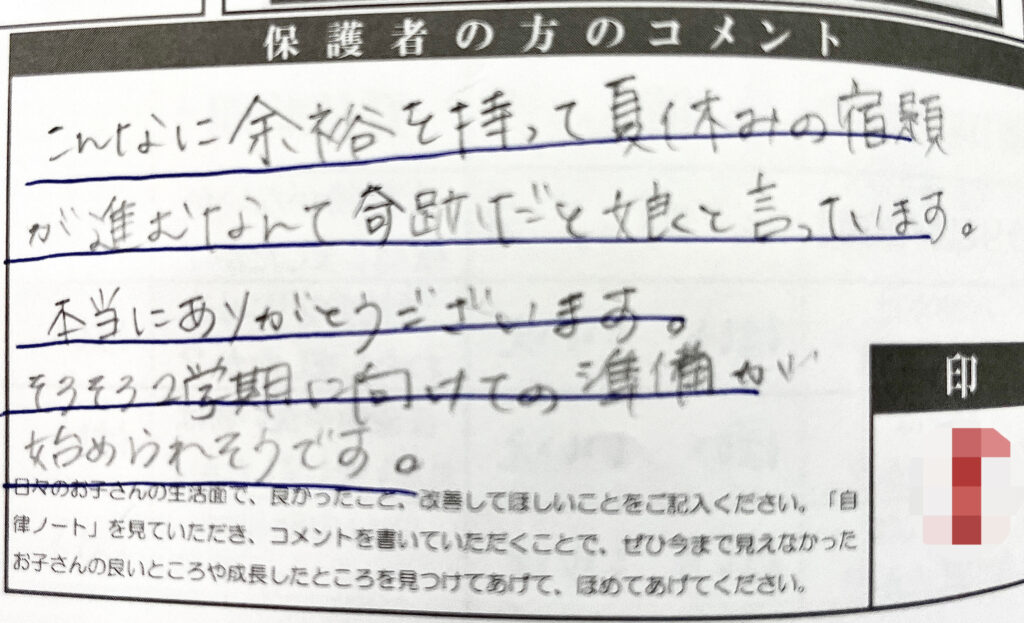 保護者の方のコメント
こんなに余裕を持って夏休みの宿題
が進むなんて奇跡だと娘くと言っています。
本当にありがとうございます。
そろそろ2学期に向けての準備が
始められそうです。
印
日々のお子さんの生活面で、良かったこと、改善してほしいことをご記入ください。「自
律ノート」を見ていただき、コメントを書いていただくことで、ぜひ今まで見えなかった
お子さんの良いところや成長したところを見つけてあげて、ほめてあげてください。